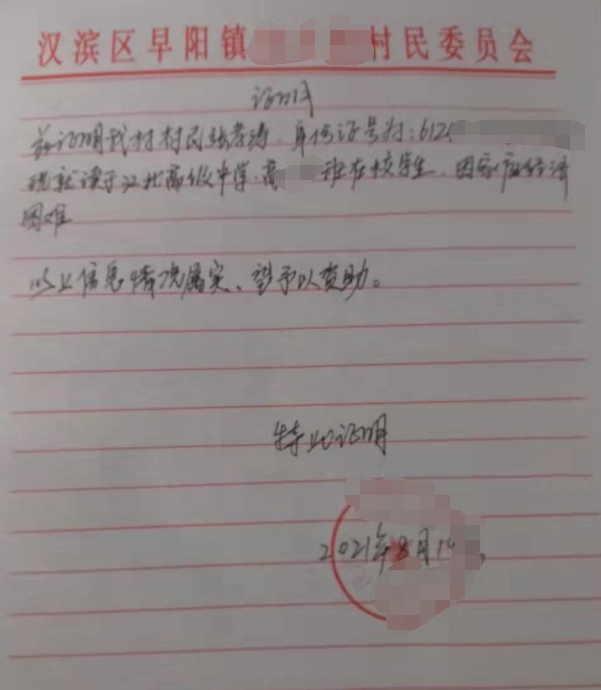 汉滨区早阳镇 村民委员会
证明
兹证明我村村民张孝涛，身份证号为：612
现就读于江北高级中学，高 班在校学生，因家庭经济
困难
以上信息情况属实、望予以资助。
特此证明
2021年8月1